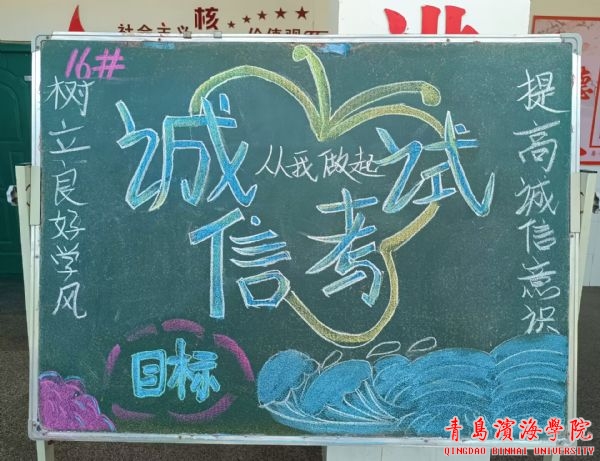 社会主义核
价值观
16#
树立良好学风
诚信考试
从我做起
提高诚信意识
目标
德
青島濱海學院
QINGDAO BINHAI UNIVERSITY